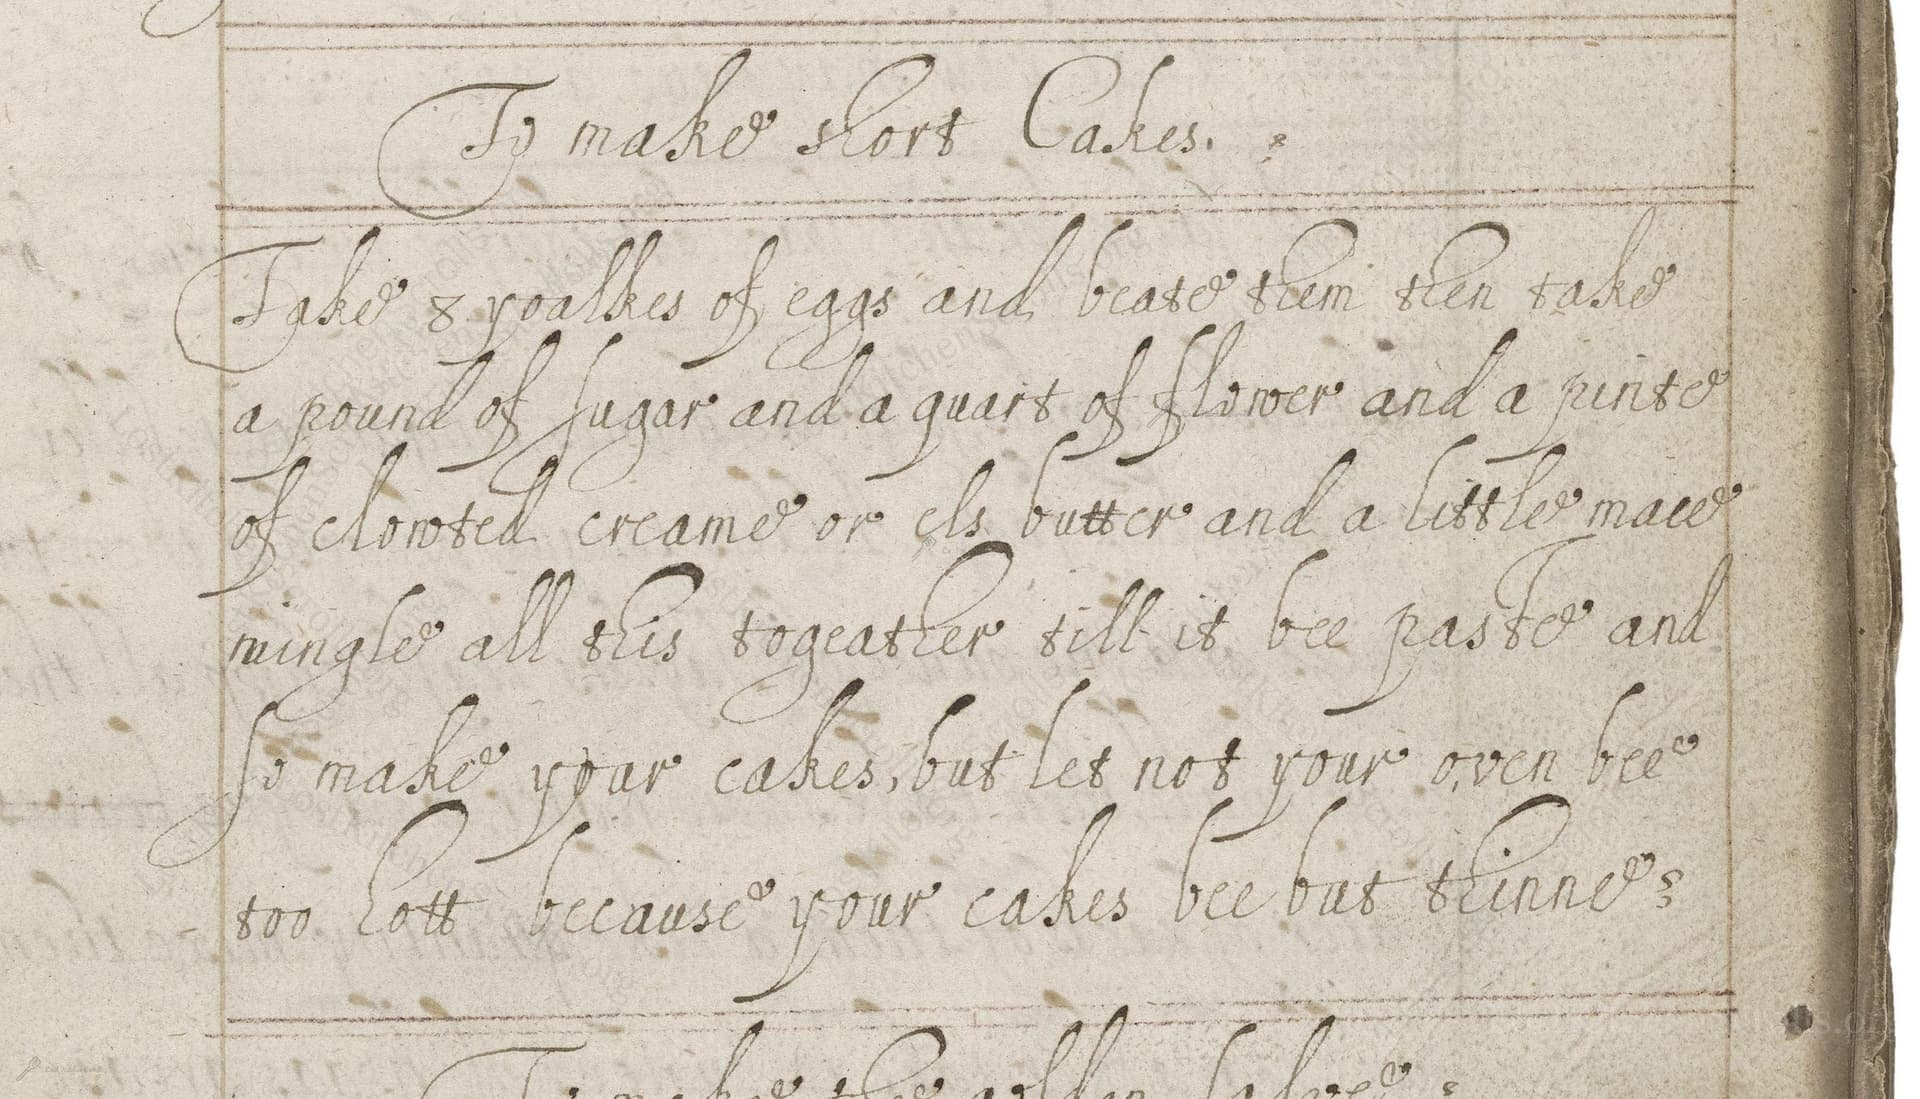 To make short Cakes.
Take 8 yoalkes of eggs and beate them then take
a pound of sugar and a quart of flower and a pinte
of clowted creame or els butter and a little mace
mingle all this togeather till it bee paste and
so make your cakes, but let not your oven bee
too hott because your cakes bee but thinne
To make the golden salve